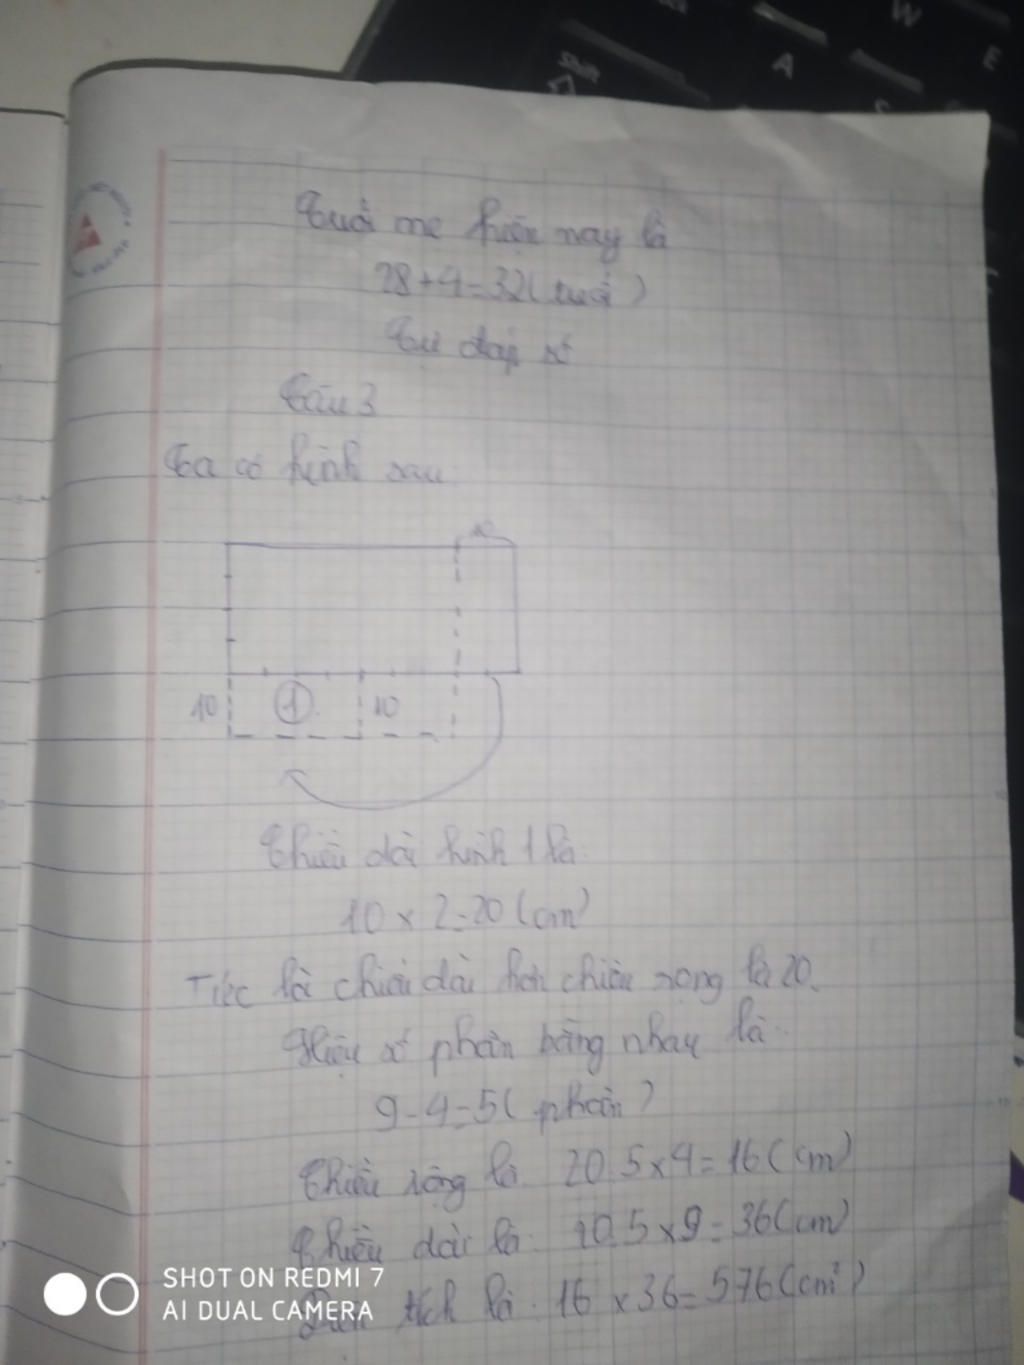 W
E
Shift
A
Tuổi mẹ hiện nay là
28+4=32(tuổi)
Tự đáp số
Câu 3
Ta có hình sau
10
10 1 10
Chiều dài hình 1 là
10 x 2=20 (cm)
Tức là chiều dài hơn chiều rộng là 20.
Hiệu số phần bằng nhau là
9-4=5( phần)
Chiều rộng là 20:5x4=16(cm)
Chiều dài là: 20:5x9=36(cm)
Diện tích là: 16 x36=576(cm²)
SHOT ON REDMI 7
AI DUAL CAMERA